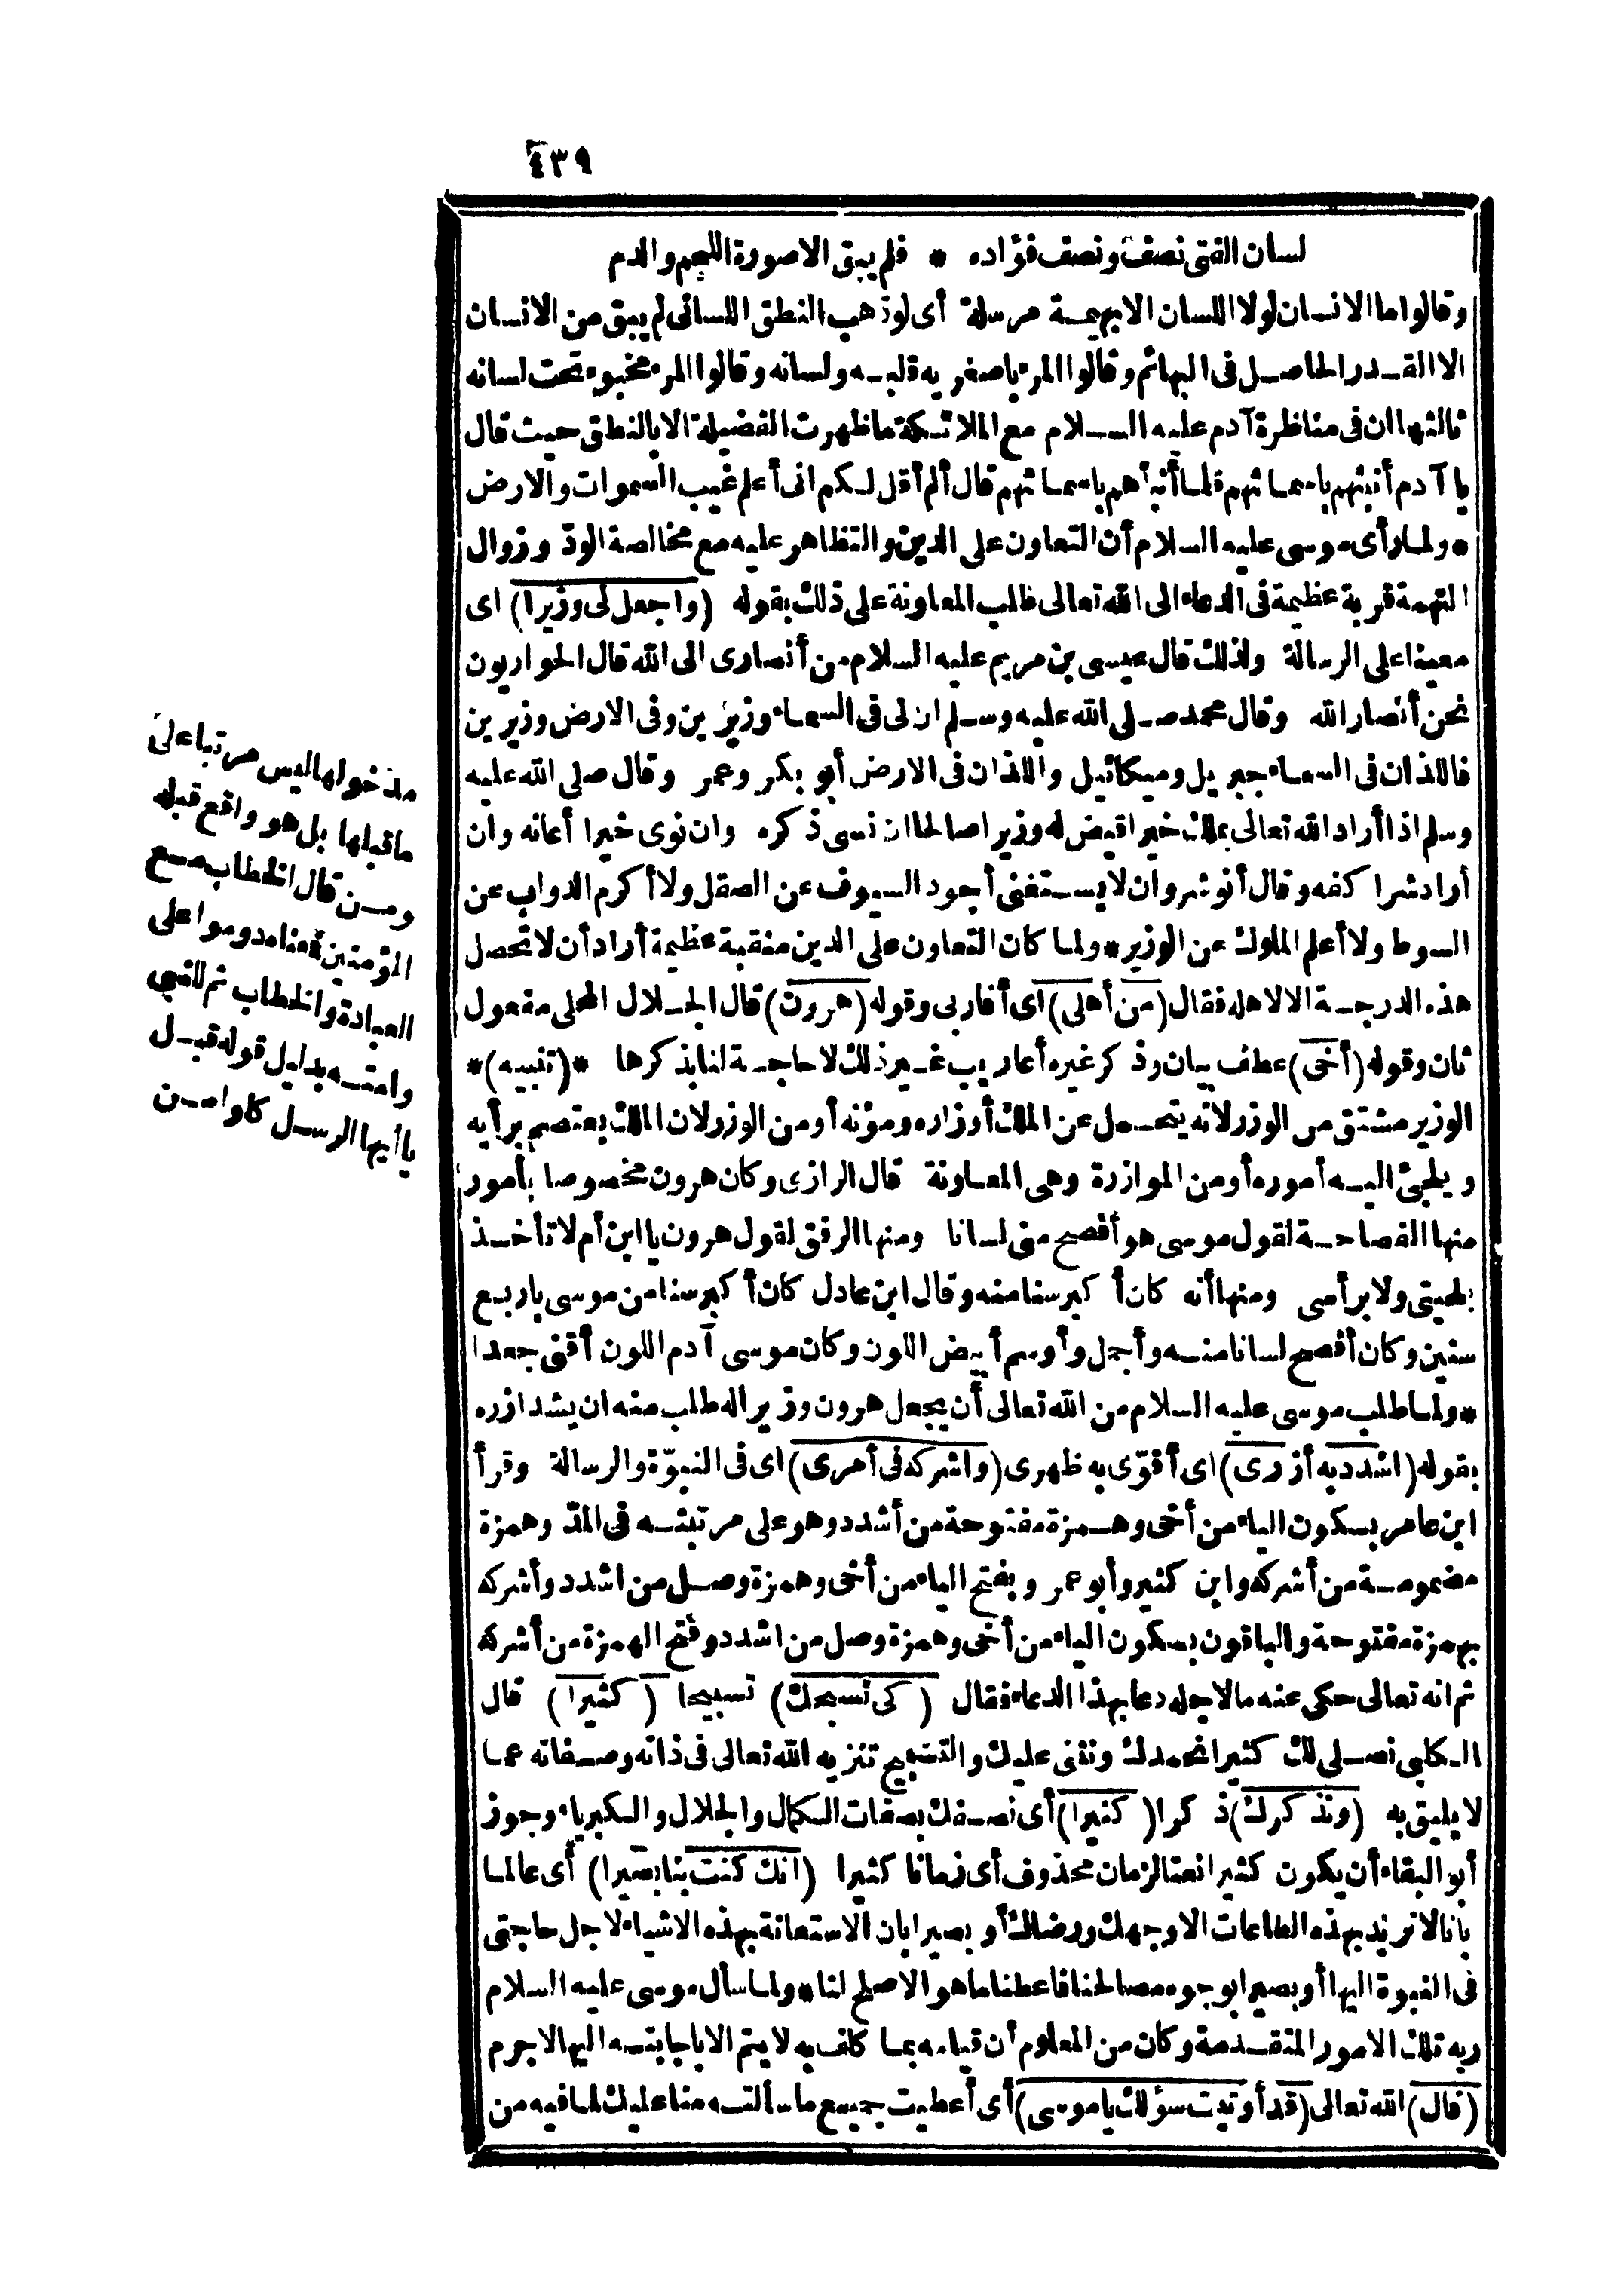 ٤٣٩
لسان الفتى نصف ونصف فؤاده * فلم يبق الا صورة اللحم والدم
وقالوا ما الانسان لولا اللسان الا بهيمة مرسلة أى لو ذهب النطق اللسانى لم يبق من الانسان
الا القدر الحاصل فى البهائم وقالوا المرء باصغريه قلبه ولسانه وقالوا المرء مخبوء تحت لسانه
ثالثها ان فى مناظرة آدم عليه السلام مع الملائكة ما ظهرت الفضيلة الا بالنطق حيث قال
يا آدم أنبئهم باسمائهم فلما أنبأهم باسمائهم قال ألم أقل لكم انى أعلم غيب السموات والارض
* ولما رأى موسى عليه السلام أن التعاون على الدين والتظاهر عليه مع مخالصة الودّ وزوال
التهمة قربة عظيمة فى الدعاء الى الله تعالى طلب المعاونة على ذلك بقوله (واجعل لى وزيرا) اى
معينا على الرسالة ولذلك قال عيسى بن مريم عليه السلام من أنصارى الى الله قال الحواريون
نحن أنصار الله وقال محمد صلى الله عليه وسلم ان لى فى السماء وزيرين وفى الارض وزيرين
فاللذان فى السماء جبريل وميكائيل واللذان فى الارض أبو بكر وعمر وقال صلى الله عليه
وسلم اذا أراد الله تعالى بملك خيرا قيض له وزيرا صالحا ان نسى ذكره وان نوى خيرا أعانه وان
أراد شرا كفه وقال أنوشروان لا يستغنى أجود السيوف عن الصقل ولا أكرم الدواب عن
السوط ولا أعلم الملوك عن الوزير * ولما كان التعاون على الدين منقبة عظيمة أراد أن لا تحصل
هذه الدرجة الا لاهله فقال (من أهلى) اى أقاربى وقوله (هرون) قال الجلال المحلى مفعول
ثان وقوله (أخى) عطف بيان وذكر غيره أعاريب غير ذلك لا حاجة لنا بذكرها * (تنبيه) *
الوزير مشتق من الوزر لانه يتحمل عن الملك أوزاره ومؤنه أو من الوزر لان الملك يعتصم برأيه
ويلجئ اليه أموره أو من الموازرة وهى المعاونة قال الرازى وكان هرون مخصوصا بأمور
منها الفصاحة لقول موسى هو أفصح منى لسانا ومنها الرفق لقول هرون يا ابن أم لا تأخذ
بلحيتى ولا برأسى ومنها أنه كان أكبر سنا منه وقال ابن عادل كان أكبر سنا من موسى باربع
سنين وكان أفصح لسانا منه وأجمل وأوسم أبيض اللون وكان موسى آدم اللون أقنى جعدا
* ولما طلب موسى عليه السلام من الله تعالى أن يجعل هرون وزيرا له طلب منه ان يشد ازره
بقوله (اشدد به أزرى) اى أقوّى به ظهرى (واشركه فى أمرى) اى فى النبوّة والرسالة وقرأ
ابن عامر بسكون الياء من أخى وهمزة مفتوحة من أشدد وهو على مرتبته فى المدّ وهمزة
مضمومة من أشركه وابن كثير وأبو عمرو بفتح الياء من أخى وهمزة وصل من اشدد وأشركه
بهمزة مفتوحة والباقون بسكون الياء من أخى وهمزة وصل من اشدد وفتح الهمزة من أشركه
ثم انه تعالى حكى عنه ما لاجله دعا بهذا الدعاء فقال (كى نسبحك) تسبيحا (كثيرا) قال
الكلبى نصلى لك كثيرا نحمدك ونثنى عليك والتسبيح تنزيه الله تعالى فى ذاته وصفاته عما
لا يليق به (ونذكرك) ذكرا (كثيرا) أى نصفك بصفات الكمال والجلال والكبرياء وجوز
أبو البقاء أن يكون كثيرا نعتا لزمان محذوف أى زمانا كثيرا (انك كنت بنا بصيرا) أى عالما
بانا لا نريد بهذه الطاعات الا وجهك ورضاك أو بصيرا بان الاستعانة بهذه الاشياء لاجل حاجتى
فى النبوة اليها أو بصيرا بوجوه مصالحنا فاعطنا ما هو الاصلح لنا * ولما سأل موسى عليه السلام
ربه تلك الامور المتقدمة وكان من المعلوم أن قيامه بما كلف به لا يتم الا باجابته اليها لا جرم
(قال) الله تعالى (قد أوتيت سؤلك يا موسى) أى أعطيت جميع ما سألته منا عليك لما فيه من
مدخولها ليس مرتبا على
ما قبلها بل هو واقع قبله
ومن قال الخطاب مع
المؤمنين فمعناه دوموا على
العبادة والخطاب ثم للنبى
وامته بدليل قوله قبل
يا أيها الرسل كلوا من